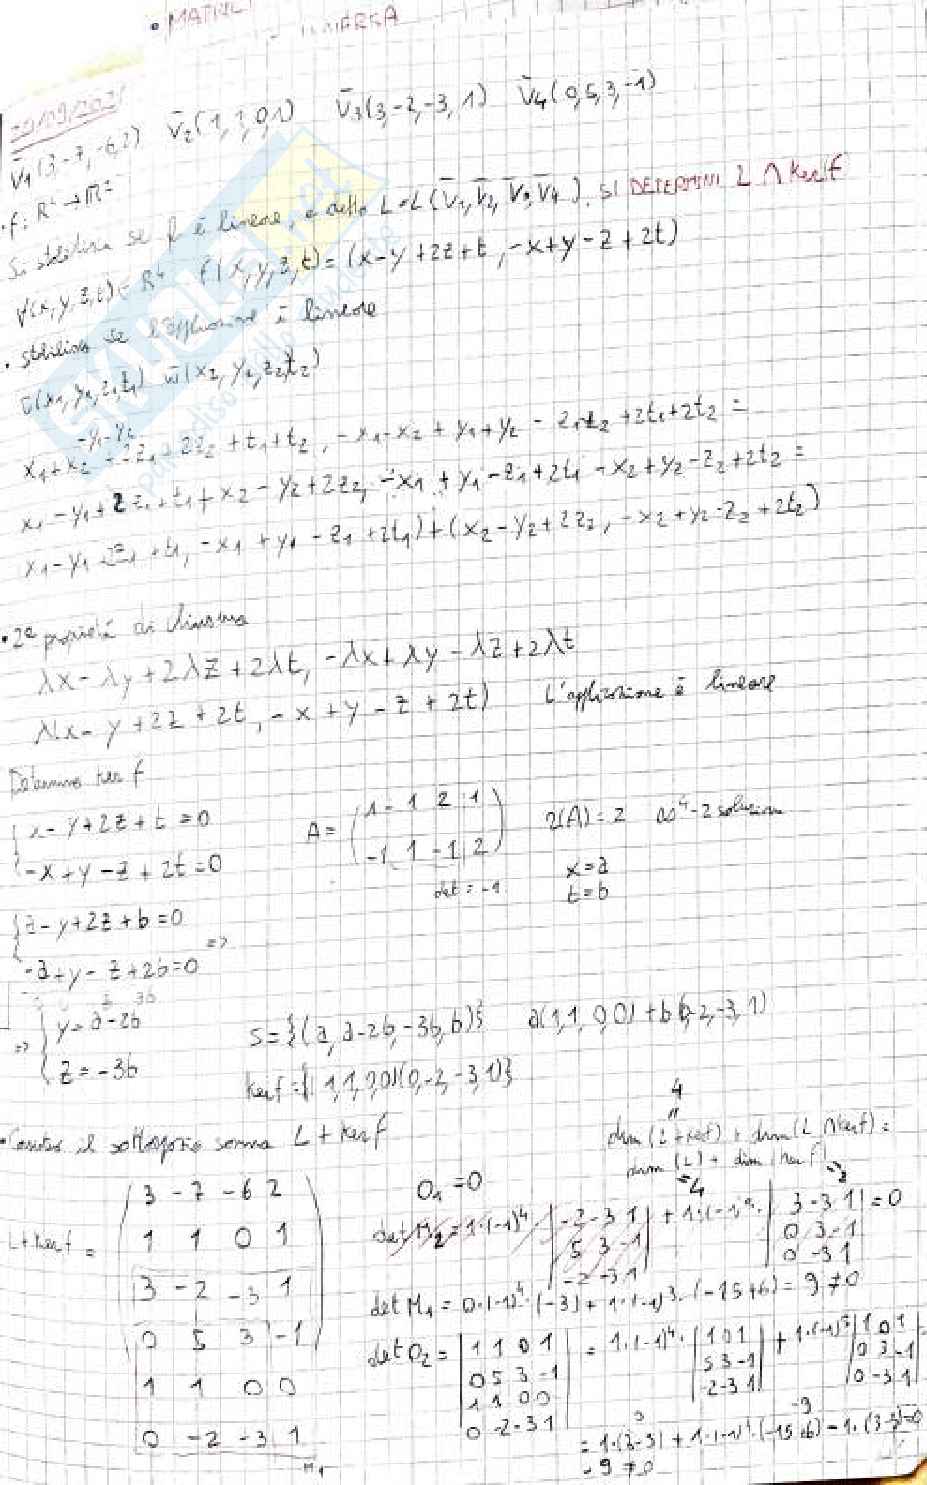 • MATRICE INVERSA
20/09/2021
v̄1(3,-7,-6,2) v̄2(1,1,0,1) v̄3(3,-2,-3,1) v̄4(0,5,3,-1)
• f: R⁴ → R²
Si stabilisca se f è lineare, e detto L = L(v̄1, v̄2, v̄3, v̄4), SI DETERMINI L ∩ Kerf
∀(x,y,z,t) ∈ R⁴ f(x,y,z,t) = (x-y+2z+t, -x+y-z+2t)
• stabilire se l'applicazione è lineare
ū(x1,y1,z1,t1) w̄(x2,y2,z2,t2)
-y1-y2
x1+x2 +2z1+2z2+t1+t2, -x1-x2+y1+y2-z1-z2+2t1+2t2 =
x1-y1+2z1+t1+x2-y2+2z2, -x1+y1-z1+2t1-x2+y2-z2+2t2 =
x1-y1 2z1+t1, -x1+y1-z1+2t1)+(x2-y2+2z2, -x2+y2-z2+2t2)
• 2ª proprietà di chiusura
λx-λy+2λz+2λt, -λx+λy-λz+2λt
λ(x-y+2z+2t, -x+y-z+2t) L'applicazione è lineare
Determino ker f
{ x-y+2z+t=0 A = ( 1 -1 2 1 ) r(A)=2 ∞⁴⁻² soluzioni
-x+y-z+2t=0 ( -1 1 -1 2 ) x=a
det = -1 t=b
{ a-y+2z+b=0 =>
-a+y-z+2b=0
=> { y=a-2b S={(a, a-2b, -3b, b)} a(1,1,0,0)+b(0,-2,-3,1)
z=-3b Kerf={(1,1,0,0)(0,-2,-3,1)}
4
• sottospazio somma L+Kerf dim(L+kerf)+dim(L∩Kerf)=
dim(L)+dim(kerf)
=4 2
3 -7 -6 2 O1=0
L+Kerf = 1 1 0 1 det M2=1·(-1)⁴ | -2 -3 1 | 5 3 -1 | -2 -3 1 | | 3 -3 1 | 0 3 -1 | 0 -3 1 | =0
3 -2 -3 1 det M1=0·(-1)⁴·(-3)+1·(-1)³·(-15+6)=9≠0
0 5 3 -1 det O2= | 1 1 0 1 | =1·(-1)⁴· | 1 0 1 | | 1 0 1 |
0 5 3 -1 | 5 3 -1 | 0 3 -1 |
1 1 0 0 1 1 0 0 | -2 -3 1 | 0 -3 1 |
0 -2 -3 1 | -9
0 -2 -3 1 =1·(3-3)+1·(-1)⁴·(-15+6)-1·(3-3)=0
M1 -9≠0